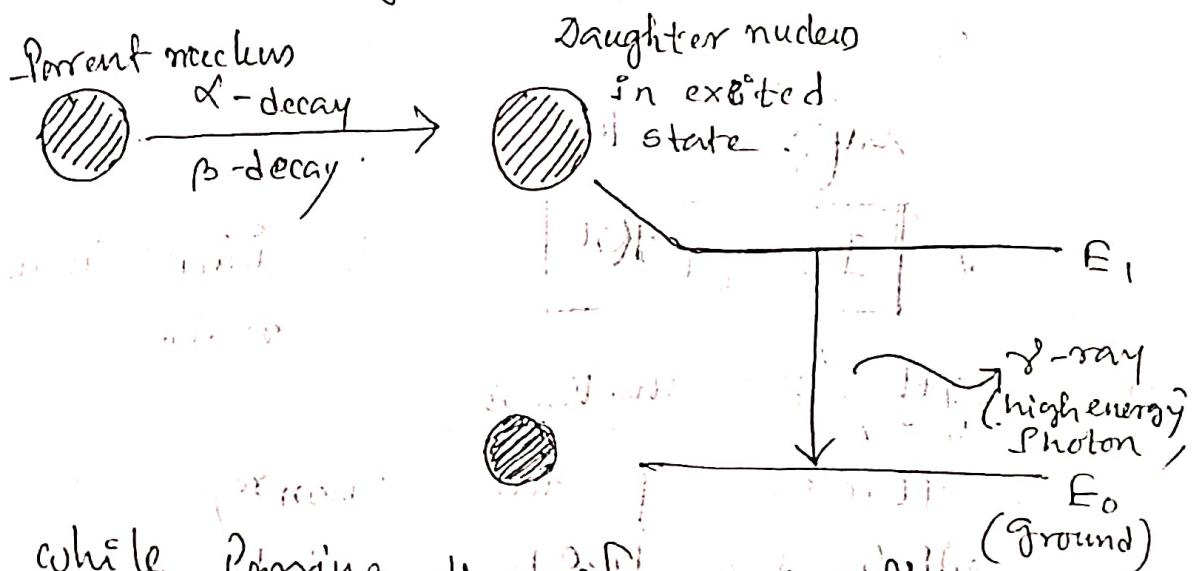 Parent nucleus
α-decay
β-decay
Daughter nucleus
in exited
state.
E₁
γ-ray
(high energy)
Photon
E₀
(Ground)
while